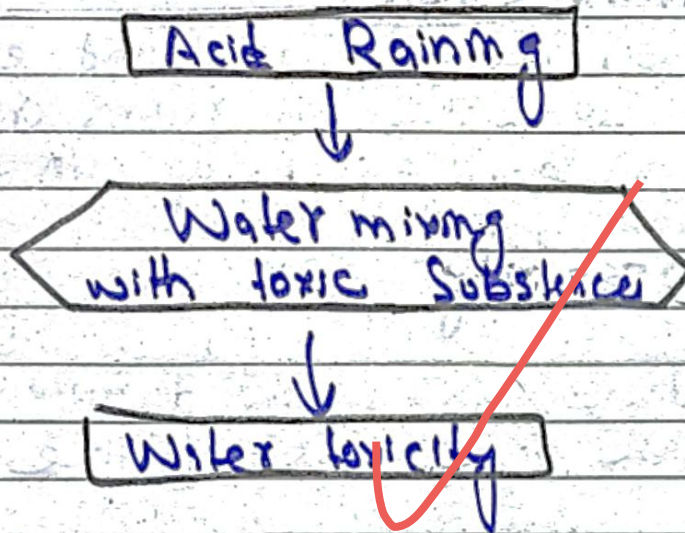 Acid Raining
Water mixing
with toxic Substances
Water toxicity